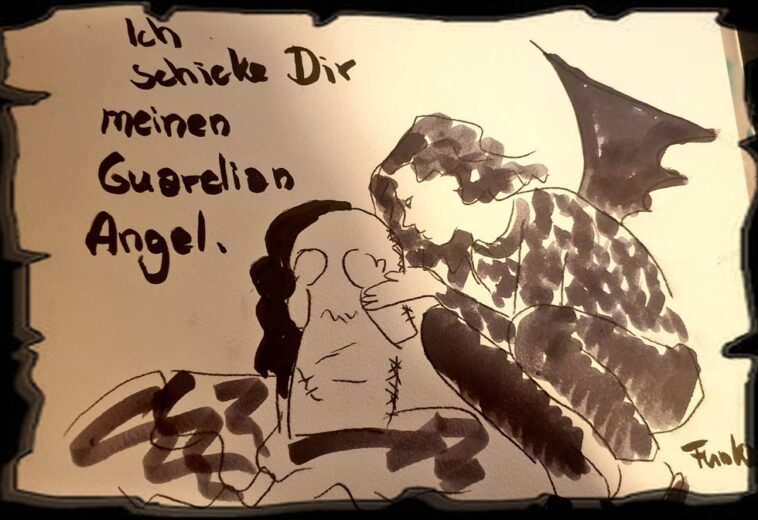 Ich
schicke Dir
meinen
Guardian
Angel.